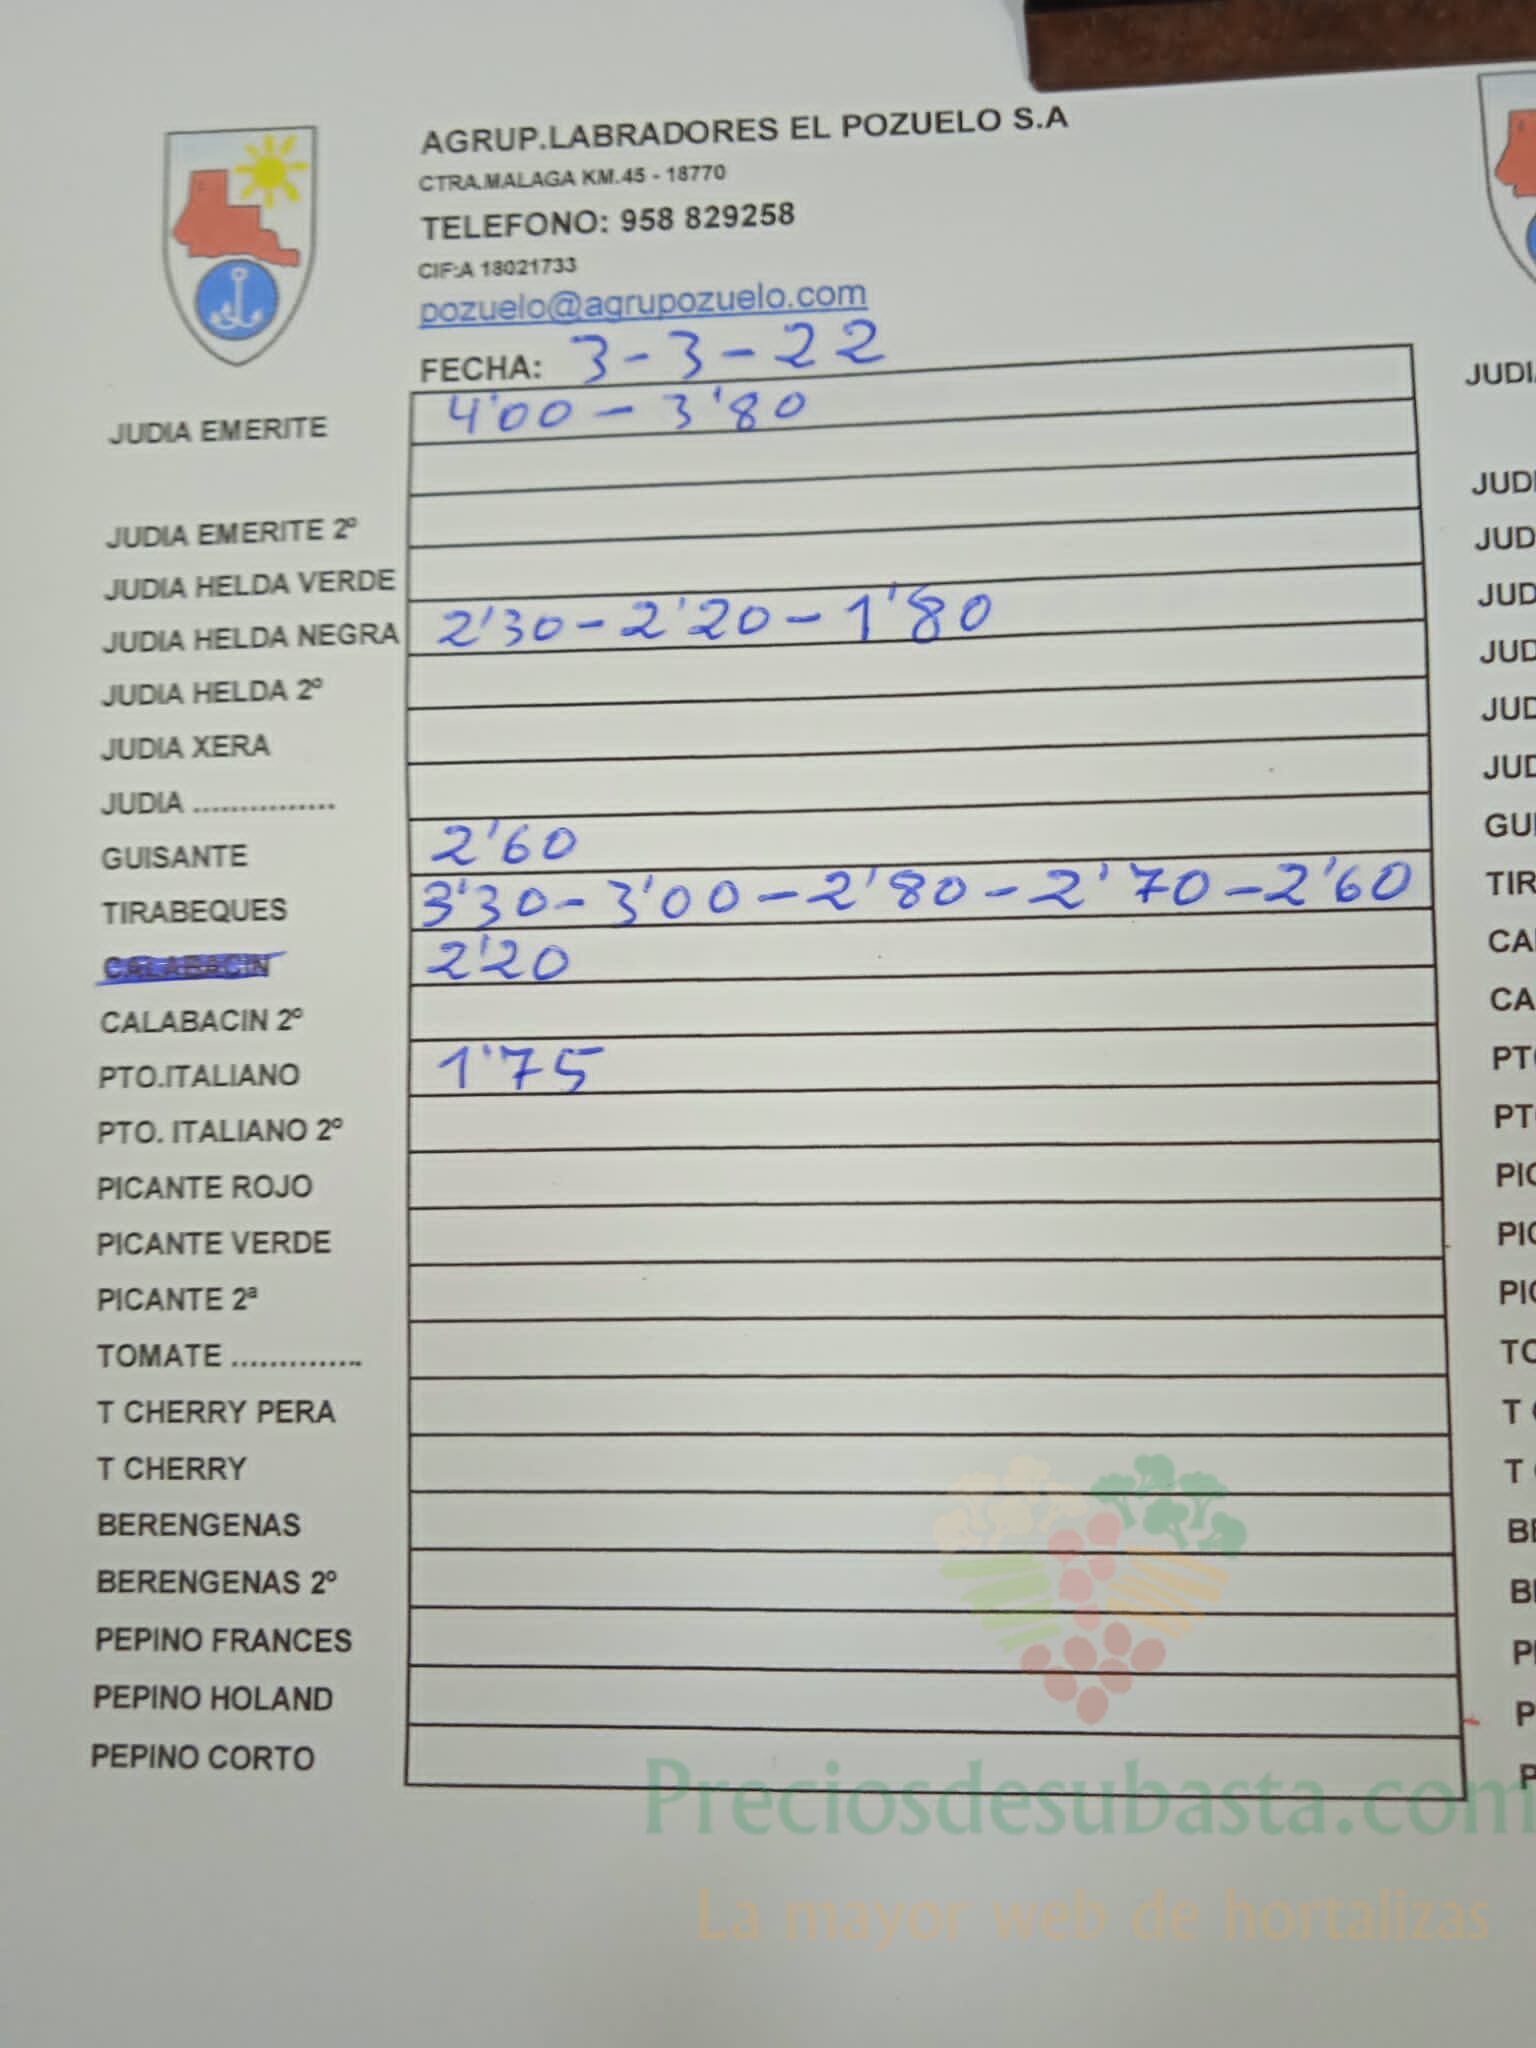 AGRUP.LABRADORES EL POZUELO S.A
CTRA.MALAGA KM.45 - 18770
TELEFONO: 958 829258
CIF:A 18021733
pozuelo@agrupozuelo.com
FECHA: 3-3-22
JUDIA EMERITE 4'00 - 3'80
JUDIA EMERITE 2º
JUDIA HELDA VERDE
JUDIA HELDA NEGRA 2'30 - 2'20 - 1'80
JUDIA HELDA 2º
JUDIA XERA
JUDIA ...............
GUISANTE 2'60
TIRABEQUES 3'30 - 3'00 - 2'80 - 2'70 - 2'60
CALABACIN 2'20
CALABACIN 2º
PTO.ITALIANO 1'75
PTO. ITALIANO 2º
PICANTE ROJO
PICANTE VERDE
PICANTE 2ª
TOMATE ..............
T CHERRY PERA
T CHERRY
BERENGENAS
BERENGENAS 2º
PEPINO FRANCES
PEPINO HOLAND
PEPINO CORTO
Preciosdesubasta.com
La mayor web de hortalizas